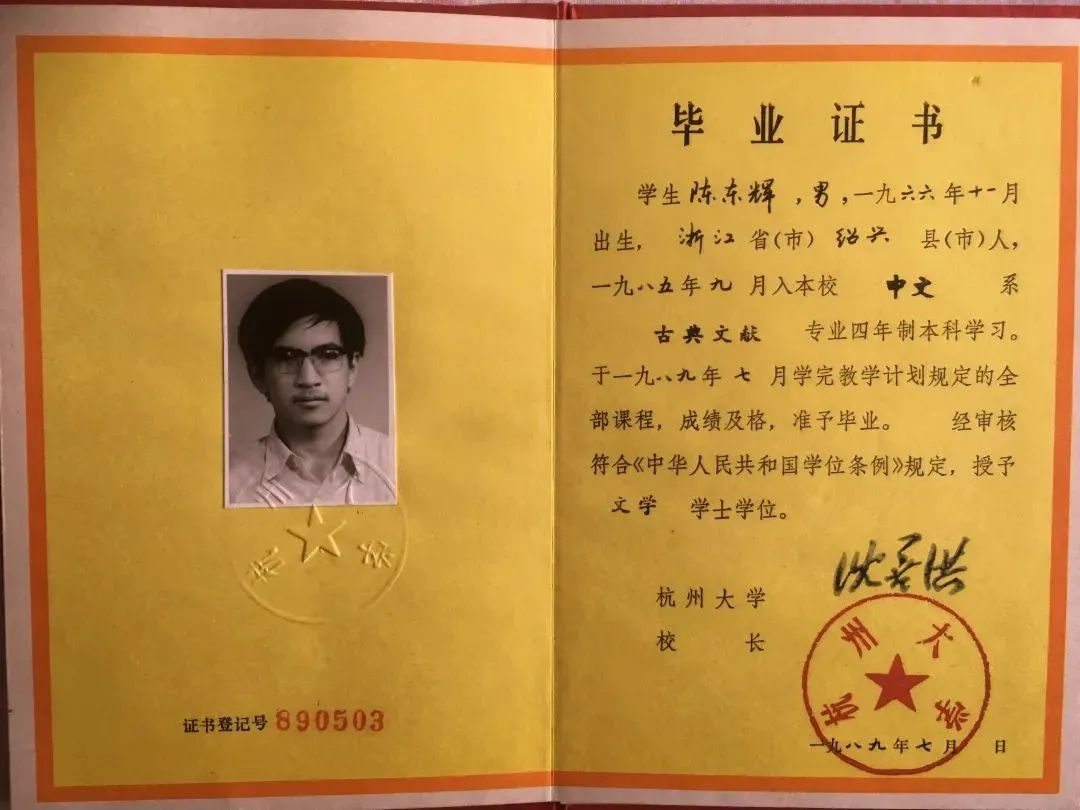 证书登记号 890503
毕业证书
学生 陈东辉 ,男,一九六六年十一月
出生, 浙江 省(市) 绍兴 县(市)人,
一九八五年九 月入本校 中文 系
古典文献 专业四年制本科学习。
于一九八九年 七 月学完教学计划规定的全
部课程, 成绩及格, 准予毕业。 经审核
符合《中华人民共和国学位条例》规定, 授予
文学 学士学位。
沈善洪
杭州大学
校 长
杭州大学
一九八九年七月 日